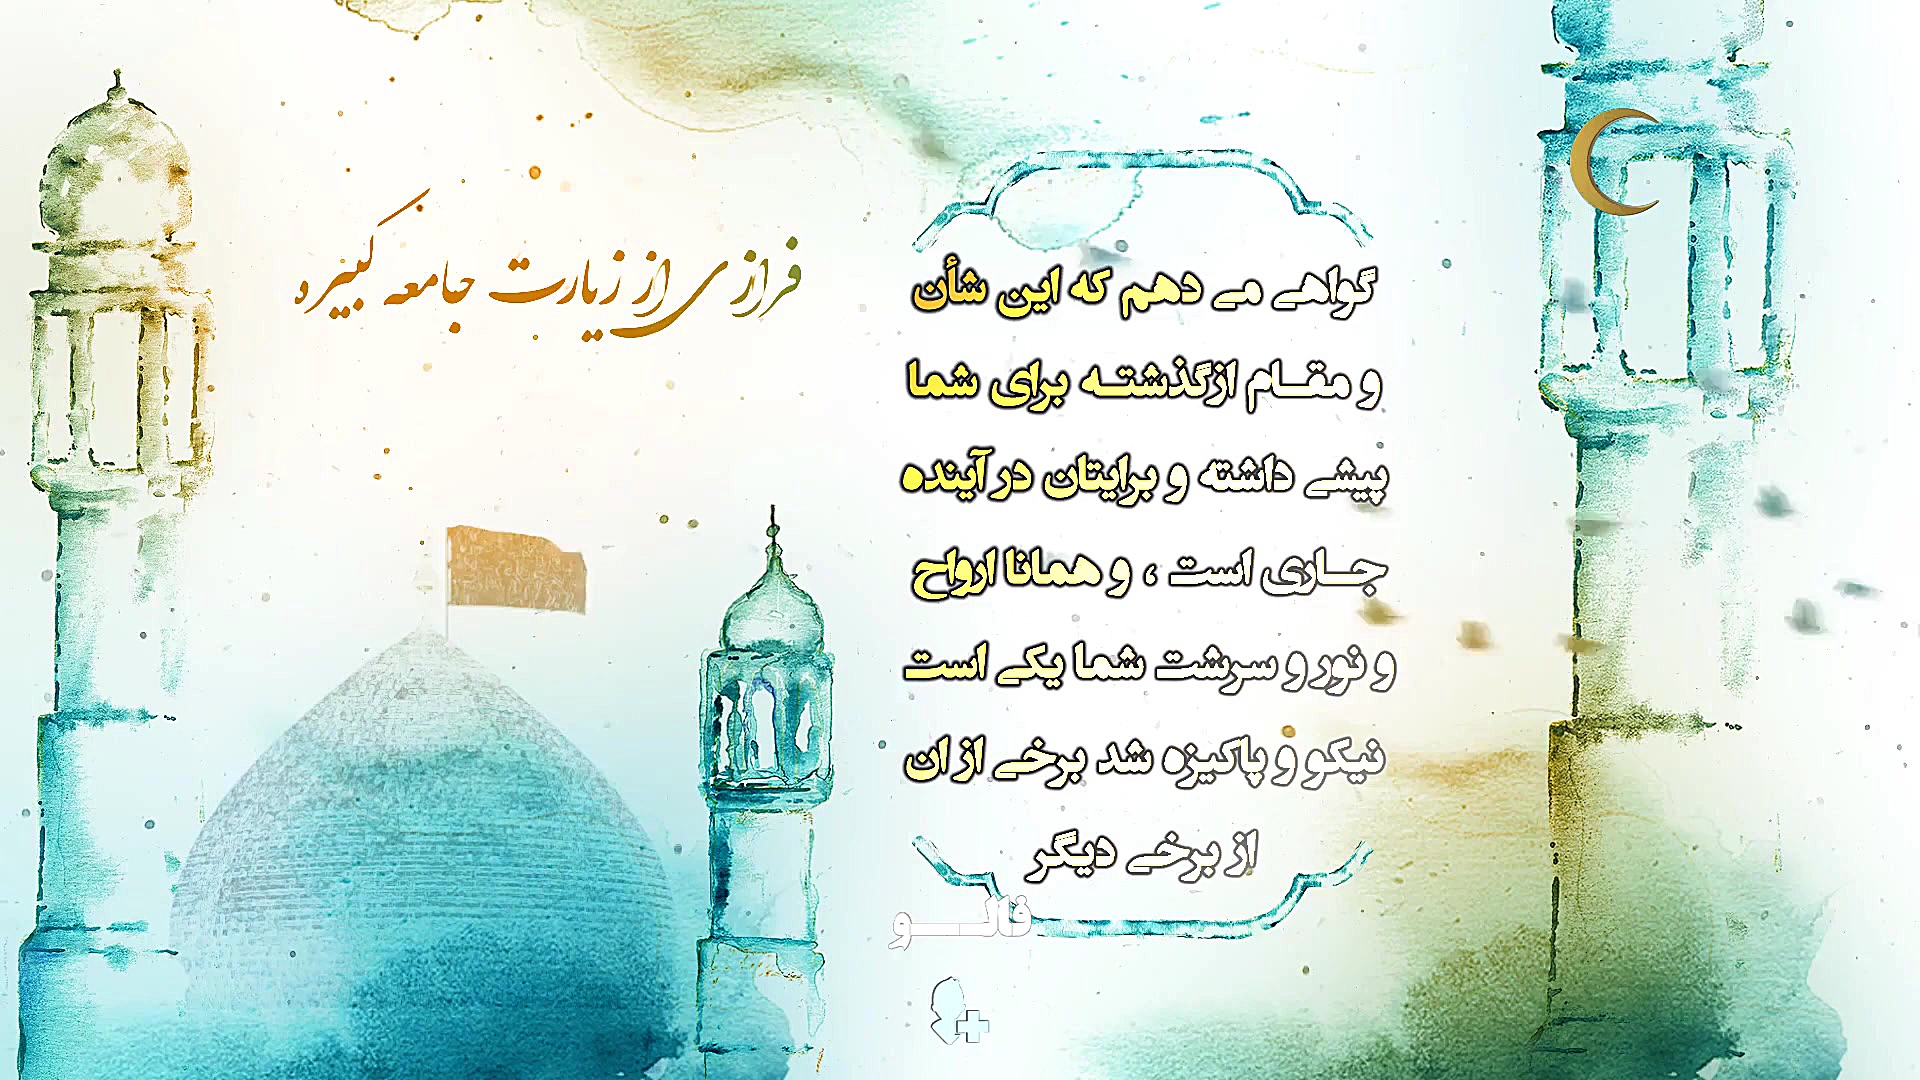 فرازی از زیارت جامعه کبیره
گواهی می دهم که این شأن
و مقـام ازگذشتـه برای شما
پیشی داشته و برایتان در آینده
جـاری است ، و همانا ارواح
و نور و سرشت شما یکی است
نیکو و پاکیزه شد برخی از ان
از برخی دیگر
فالـو